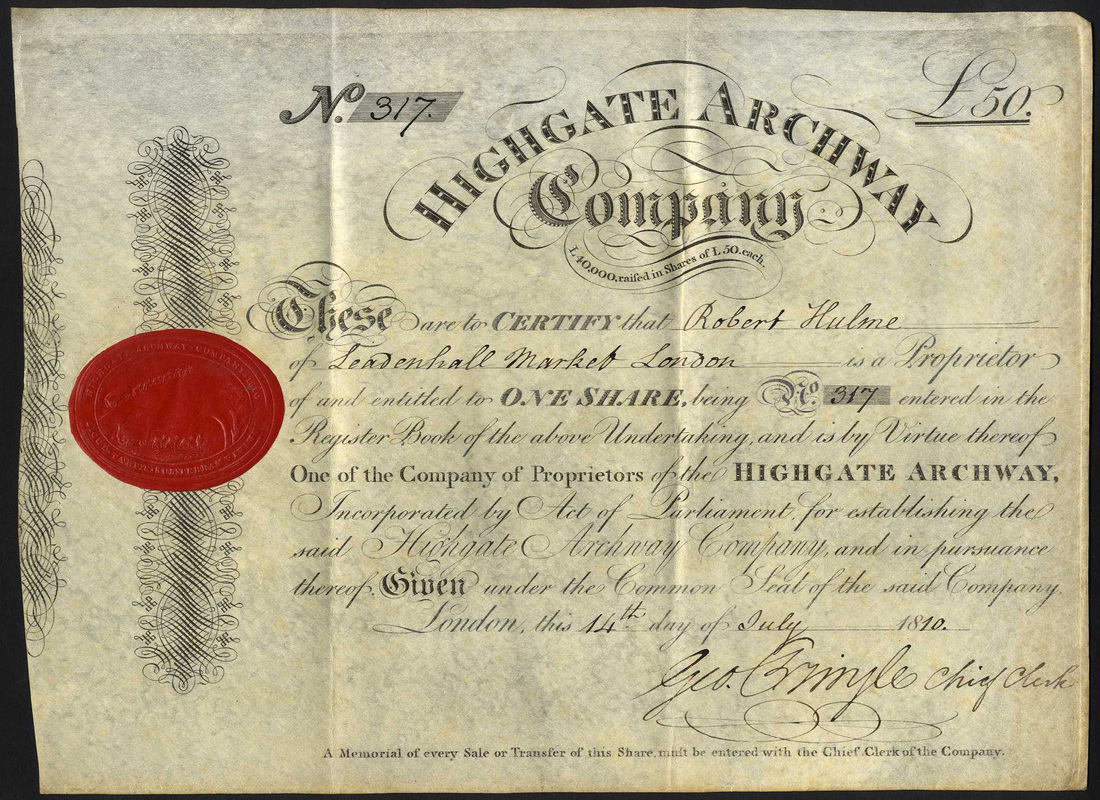 No. 317.
£50.
HIGHGATE ARCHWAY
Company
L40,000, raiſed in Shares of L50. each.
These are to CERTIFY that Robert Hulme
of Leadenhall Market London is a Proprietor
of and entitled to ONE SHARE, being No. 317 entered in the
Register Book of the above Undertaking, and is by Virtue thereof
One of the Company of Proprietors of the HIGHGATE ARCHWAY,
Incorporated by Act of Parliament, for establishing the
said Highgate Archway Company, and in pursuance
thereof. Given under the Common Seal of the said Company.
London, this 14th day of July 1810.
Geo. Pringle Chief Clerk
A Memorial of every Sale or Transfer of this Share, muſt be entered with the Chief Clerk of the Company.